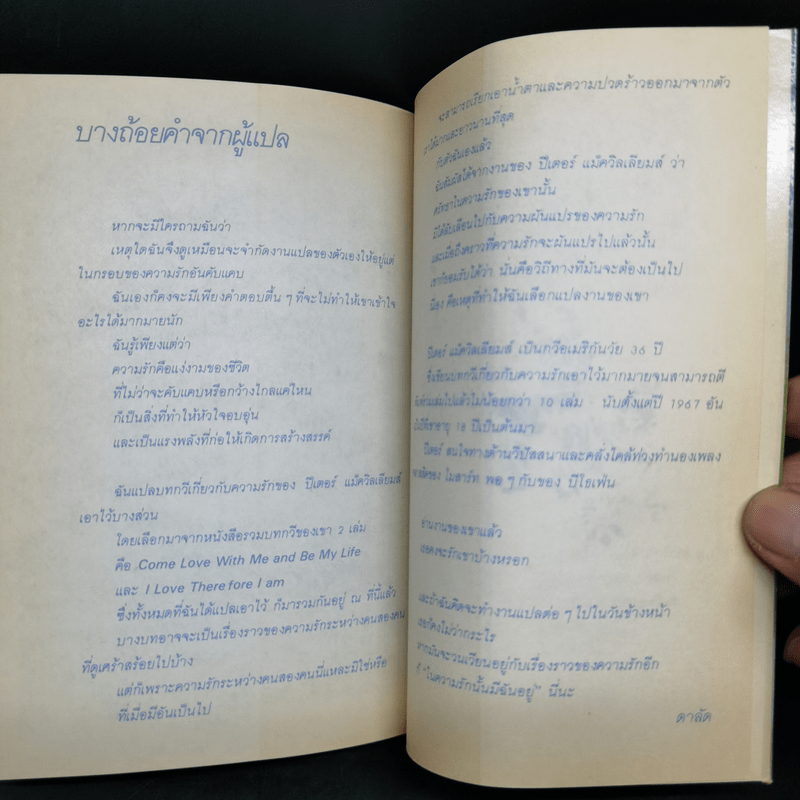 บางถ้อยคำจากผู้แปล
หากจะมีใครถามฉันว่า
เหตุใดฉันจึงดูเหมือนจะจำกัดงานแปลของตัวเองให้อยู่แต่
ในกรอบของความรักอันคับแคบ
ฉันเองก็คงจะมีเพียงคำตอบตื้น ๆ ที่จะไม่ทำให้เขาเข้าใจ
อะไรได้มากมายนัก
ฉันรู้เพียงแต่ว่า
ความรักคือแง่งามของชีวิต
ที่ไม่ว่าจะคับแคบหรือกว้างไกลแค่ไหน
ก็เป็นสิ่งที่ทำให้หัวใจอบอุ่น
และเป็นแรงพลังที่ก่อให้เกิดการสร้างสรรค์
ฉันแปลบทกวีเกี่ยวกับความรักของ ปีเตอร์ แม็ควิลเลียมส์
เอาไว้บางส่วน
โดยเลือกมาจากหนังสือรวมบทกวีของเขา 2 เล่ม
คือ Come Love With Me and Be My Life
และ I Love Therefore I am
ซึ่งทั้งหมดที่ฉันได้แปลเอาไว้ ก็มารวมกันอยู่ ณ ที่นี้แล้ว
บางบทอาจจะเป็นเรื่องราวของความรักระหว่างคนสองคน
ที่ดูเศร้าสร้อยไปบ้าง
แต่ก็เพราะความรักระหว่างคนสองคนนี่แหละมิใช่หรือ
ที่เมื่อมีอันเป็นไป
จะสามารถเรียกเอาน้ำตาและความปวดร้าวออกมาจากตัว
เราได้มากและยาวนานที่สุด
กับตัวฉันเองแล้ว
ฉันสัมผัสได้จากงานของ ปีเตอร์ แม็ควิลเลียมส์ ว่า
ศรัทธาในความรักของเขานั้น
มิได้ลบเลือนไปกับความผันแปรของความรัก
และเมื่อถึงคราวที่ความรักจะผันแปรไปแล้วนั้น
เขาก็ยอมรับได้ว่า นั่นคือวิถีทางที่มันจะต้องเป็นไป
นี่เอง คือเหตุที่ทำให้ฉันเลือกแปลงานของเขา
ปีเตอร์ แม็ควิลเลียมส์ เป็นกวีอเมริกันวัย 36 ปี
ซึ่งเขียนบทกวีเกี่ยวกับความรักเอาไว้มากมายจนสามารถตี
ไปแล้วไม่น้อยกว่า 10 เล่ม นับตั้งแต่ปี 1967 อัน
เป็นปีที่เขาอายุ 18 ปีเป็นต้นมา
ปีเตอร์ สนใจทางด้านวิปัสสนาและคลั่งไคล้ท่วงทำนองเพลง
ของ โมสาร์ท พอ ๆ กับของ บีโธเฟ่น
อ่านงานของเขาแล้ว
เธอคงจะรักเขาบ้างหรอก
และถ้าฉันคิดจะทำงานแปลต่อ ๆ ไปในวันข้างหน้า
เธอก็คงไม่ว่ากระไร
หากมันจะวนเวียนอยู่กับเรื่องราวของความรักอีก
ก็ "ในความรักนั้นมีฉันอยู่" นี่นะ
ดาลัด